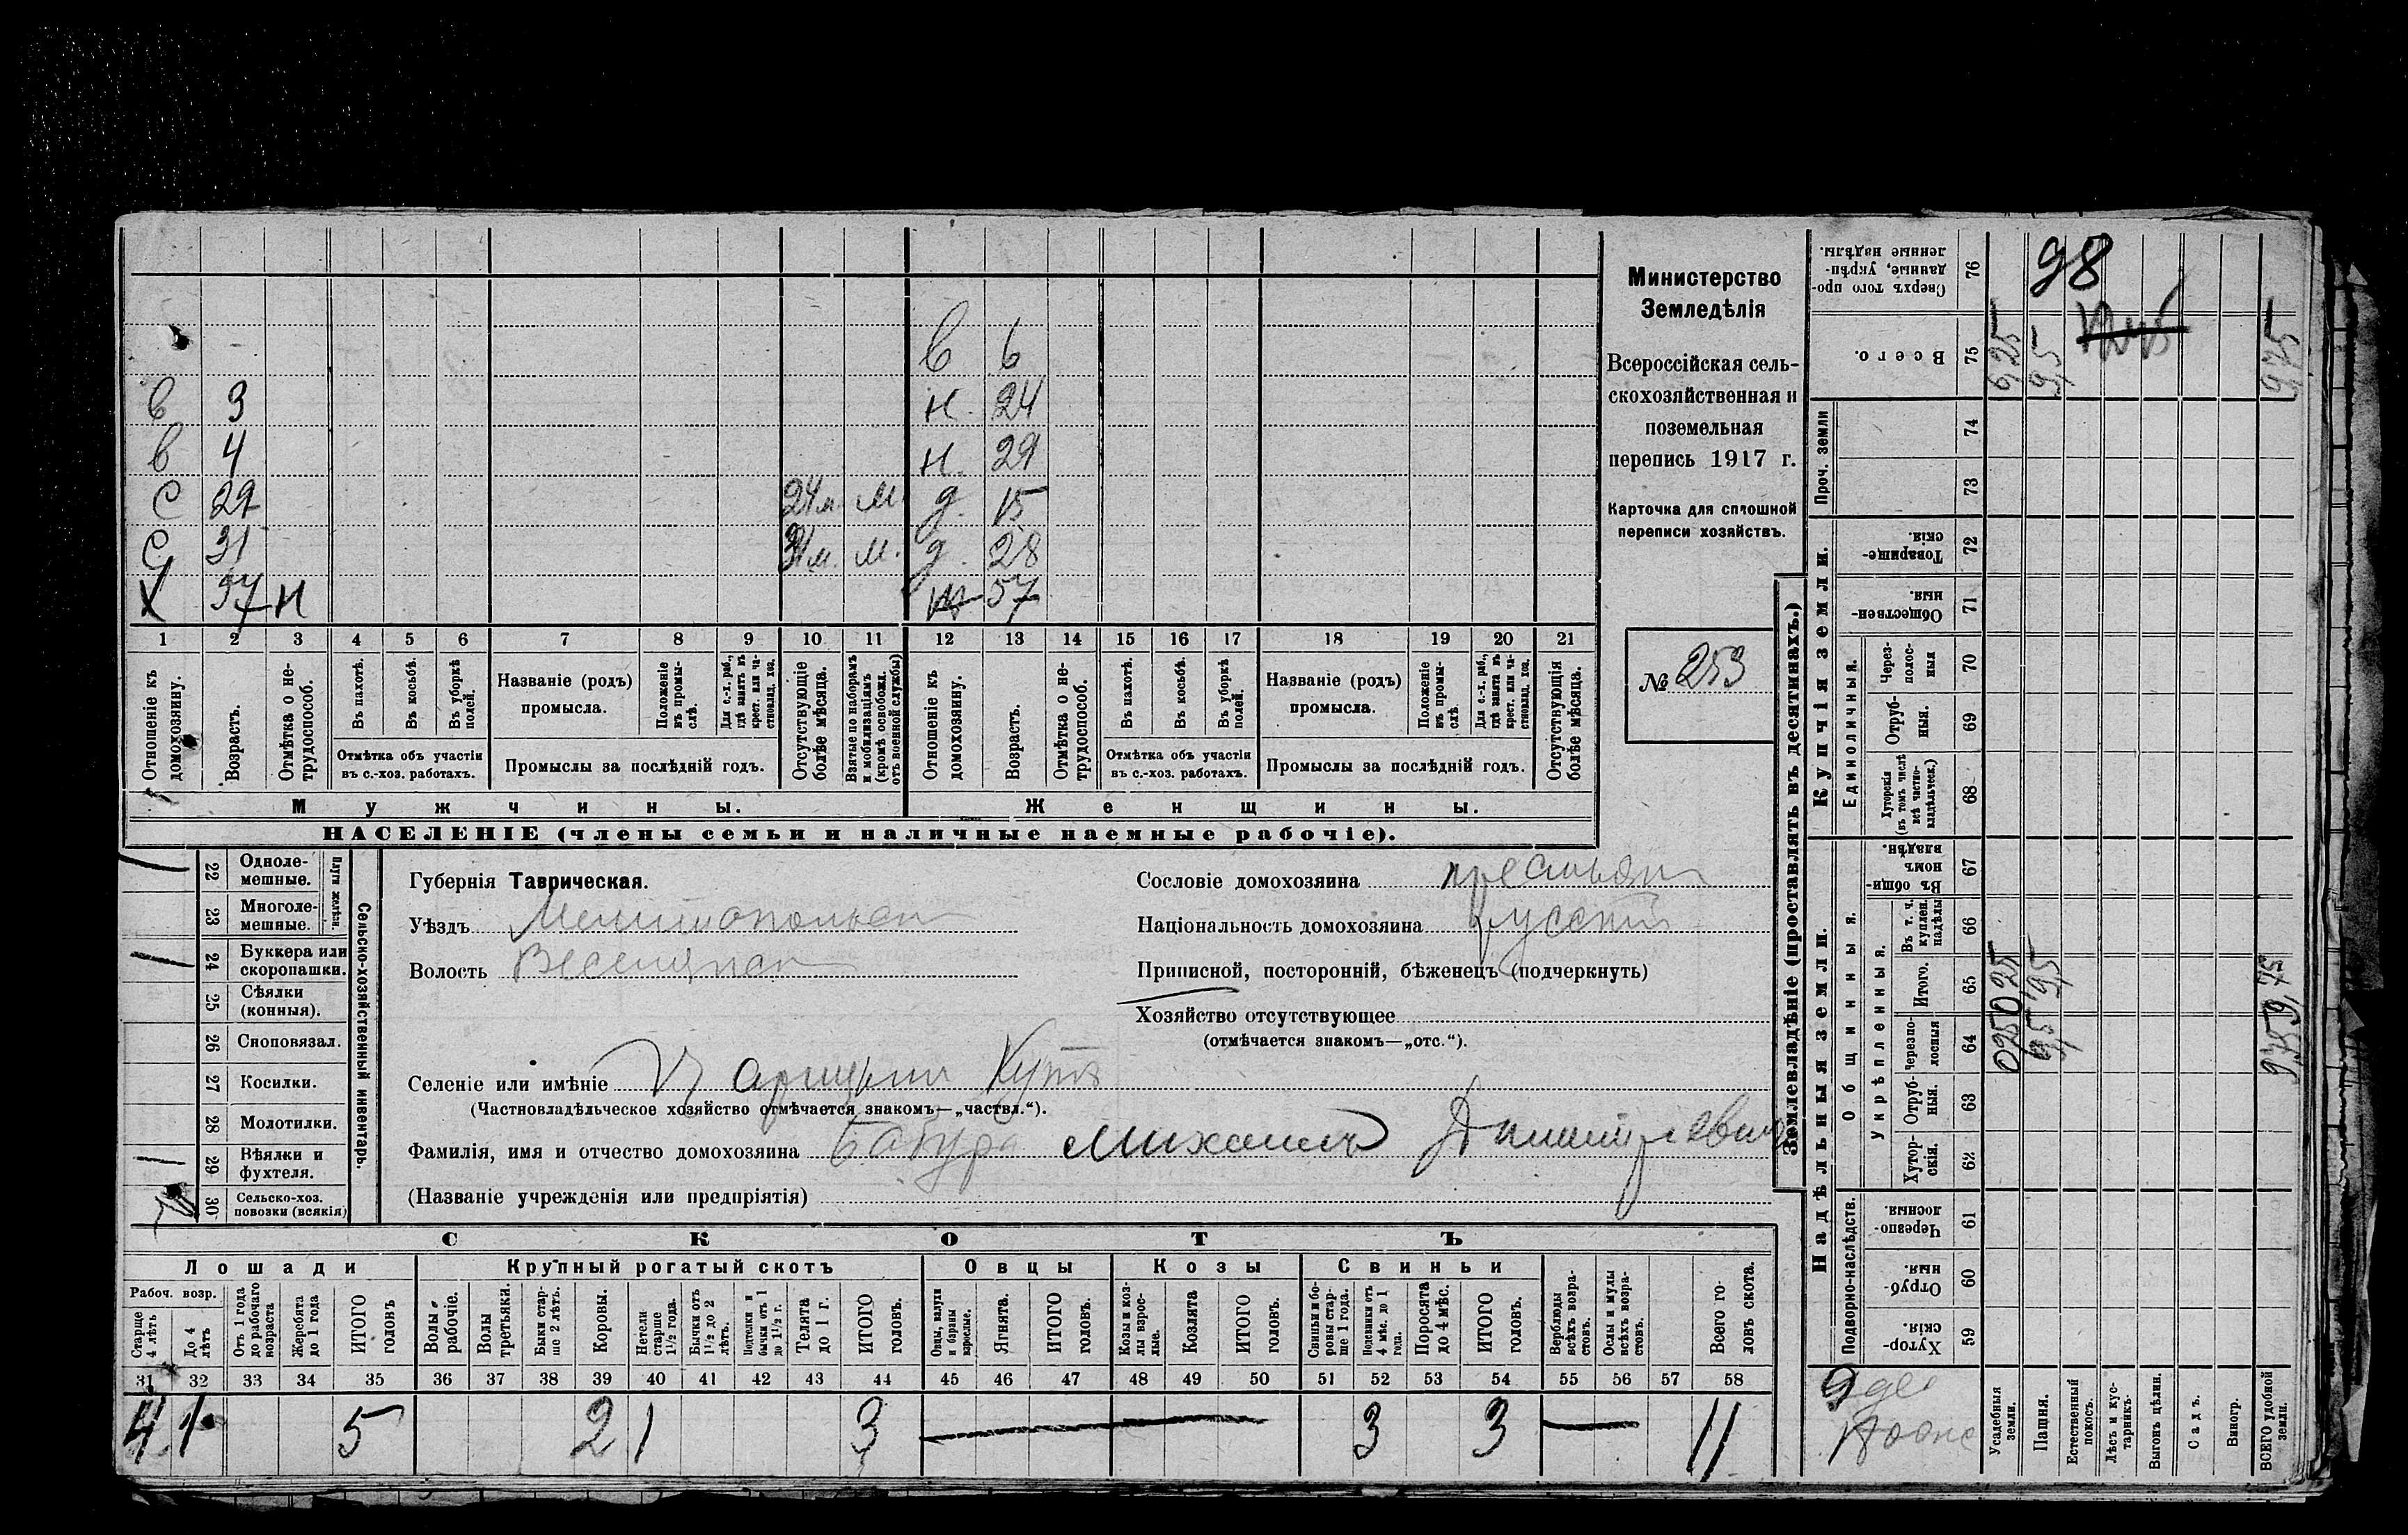 в 6
в 3 н. 24
в 4 н. 29
с 29 24 м. м. д. 15
с 31 31 м. м. д. 28
х 57 н ж 57
1 2 3 4 5 6 7 8 9 10 11 12 13 14 15 16 17 18 19 20 21
Отношеніе къ домохозяину.
Возрастъ.
Отмѣтка о не-трудоспособ.
Въ пахотѣ.
Въ косьбѣ.
Въ уборкѣ полей.
Отмѣтка объ участіи въ с.-хоз. работахъ.
Названіе (родъ) промысла.
Положеніе въ промы-слѣ.
Для с.-х. раб., гдѣ занятъ въ крест. или ча-стновлад. хоз.
Промыслы за послѣдній годъ.
Отсутствующіе болѣе мѣсяца.
Взятые по наборамъ и мобилизаціямъ (кромѣ освобожд. отъ военной службы)
Отношеніе къ домохозяину.
Возрастъ.
Отмѣтка о не-трудоспособ.
Въ пахотѣ.
Въ косьбѣ.
Въ уборкѣ полей.
Отмѣтка объ участіи въ с.-хоз. работахъ.
Названіе (родъ) промысла.
Положеніе въ промы-слѣ.
Для с.-х. раб., гдѣ занята въ крест. или ча-стновлад. хоз.
Промыслы за послѣдній годъ.
Отсутствующія болѣе мѣсяца.
Мужчины. Женщины.
НАСЕЛЕНІЕ (члены семьи и наличные наемные рабочіе).
Министерство
Земледѣлія
Всероссійская сель-
скохозяйственная и
поземельная
перепись 1917 г.
Карточка для сплошной
переписи хозяйствъ.
№ 253
22 Одноле-мешные.
23 Многоле-мешные.
Плуги желѣзн.
24 Буккера или скоропашки.
25 Сѣялки (конныя).
26 Сноповязал.
27 Косилки.
28 Молотилки.
29 Вѣялки и фухтеля.
30 Сельско-хоз. повозки (всякія)
Сельско-хозяйственный инвентарь.
Губернія Таврическая.
Уѣздъ Мелитопольск
Волость Веселянск
Селеніе или имѣніе Царицын Кутъ
(Частновладѣльческое хозяйство отмѣчается знакомъ—„частвл.“).
Фамилія, имя и отчество домохозяина Бабура Михаилъ Дмитріевич
(Названіе учрежденія или предпріятія)
Сословіе домохозяина крестьян
Національность домохозяина русскій
Приписной, посторонній, бѣженецъ (подчеркнуть)
Хозяйство отсутствующее
(отмѣчается знакомъ—„отс.“).
СКОТЪ
Лошади Крупный рогатый скотъ Овцы Козы Свиньи
Рабоч. возр.
Старше 4 лѣтъ
До 4 лѣтъ
Отъ 1 года до рабочаго возраста
Жеребята до 1 года
ИТОГО головъ
Волы рабочіе.
Волы третьяки.
Быки стар-ше 2 лѣтъ.
Коровы.
Нетели старше 1½ года.
Бычки отъ 1½ до 2 лѣтъ.
Подтелки и бычки отъ 1 до 1½ г.
Телята до 1 г.
ИТОГО головъ.
Овцы, валухи и бараны взрослые.
Ягнята.
ИТОГО головъ.
Козы и коз-лы взрос-лые.
Козлята
ИТОГО головъ.
Свиньи и бо-ровы стар-ше 1 года.
Подсвинки отъ 4 мѣс. до 1 года.
Поросята до 4 мѣс.
ИТОГО головъ.
Верблюды всѣхъ возра-стовъ.
Ослы и мулы всѣхъ возра-стовъ.
Всего го-ловъ скота.
31 32 33 34 35 36 37 38 39 40 41 42 43 44 45 46 47 48 49 50 51 52 53 54 55 56 57 58
4 1 5 2 1 3 3 3 11
Землевладѣніе (проставлять въ десятинахъ.)
Надѣльныя земли. Купчія земли. Проч. земли
Подворно-наслѣдств.
Общинныя.
Укрѣпленныя.
Единоличныя.
Хутор-скія. 59
Отруб-ныя. 60
Черезпо-лосныя 61
Хутор-скія. 62
Отруб-ныя. 63
Черезпо-лосныя 64
Итого. 65
Въ т. ч. куплен. надѣлы 66
Въ общин-номъ владѣн. 67
Хуторскія (въ томъ числѣ всѣ частно-владѣльческ.) 68
Отруб-ныя. 69
Через-полос-ныя 70
Обществен-ныя. 71
Товарище-скія. 72
73
74
Всего. 75
Сверхъ того про-данные, укрѣп-ленные надѣлы. 76
Усадебныя земли. 0,25 0,25 0,25
Пашня. 9,5 9,5 9,5
Естественный покосъ.
Лѣсъ и кус-тарникъ
Выгонъ цѣлин.
Садъ.
Виногр.
ВСЕГО удобной земли. 9,75 9,75 9,75
98